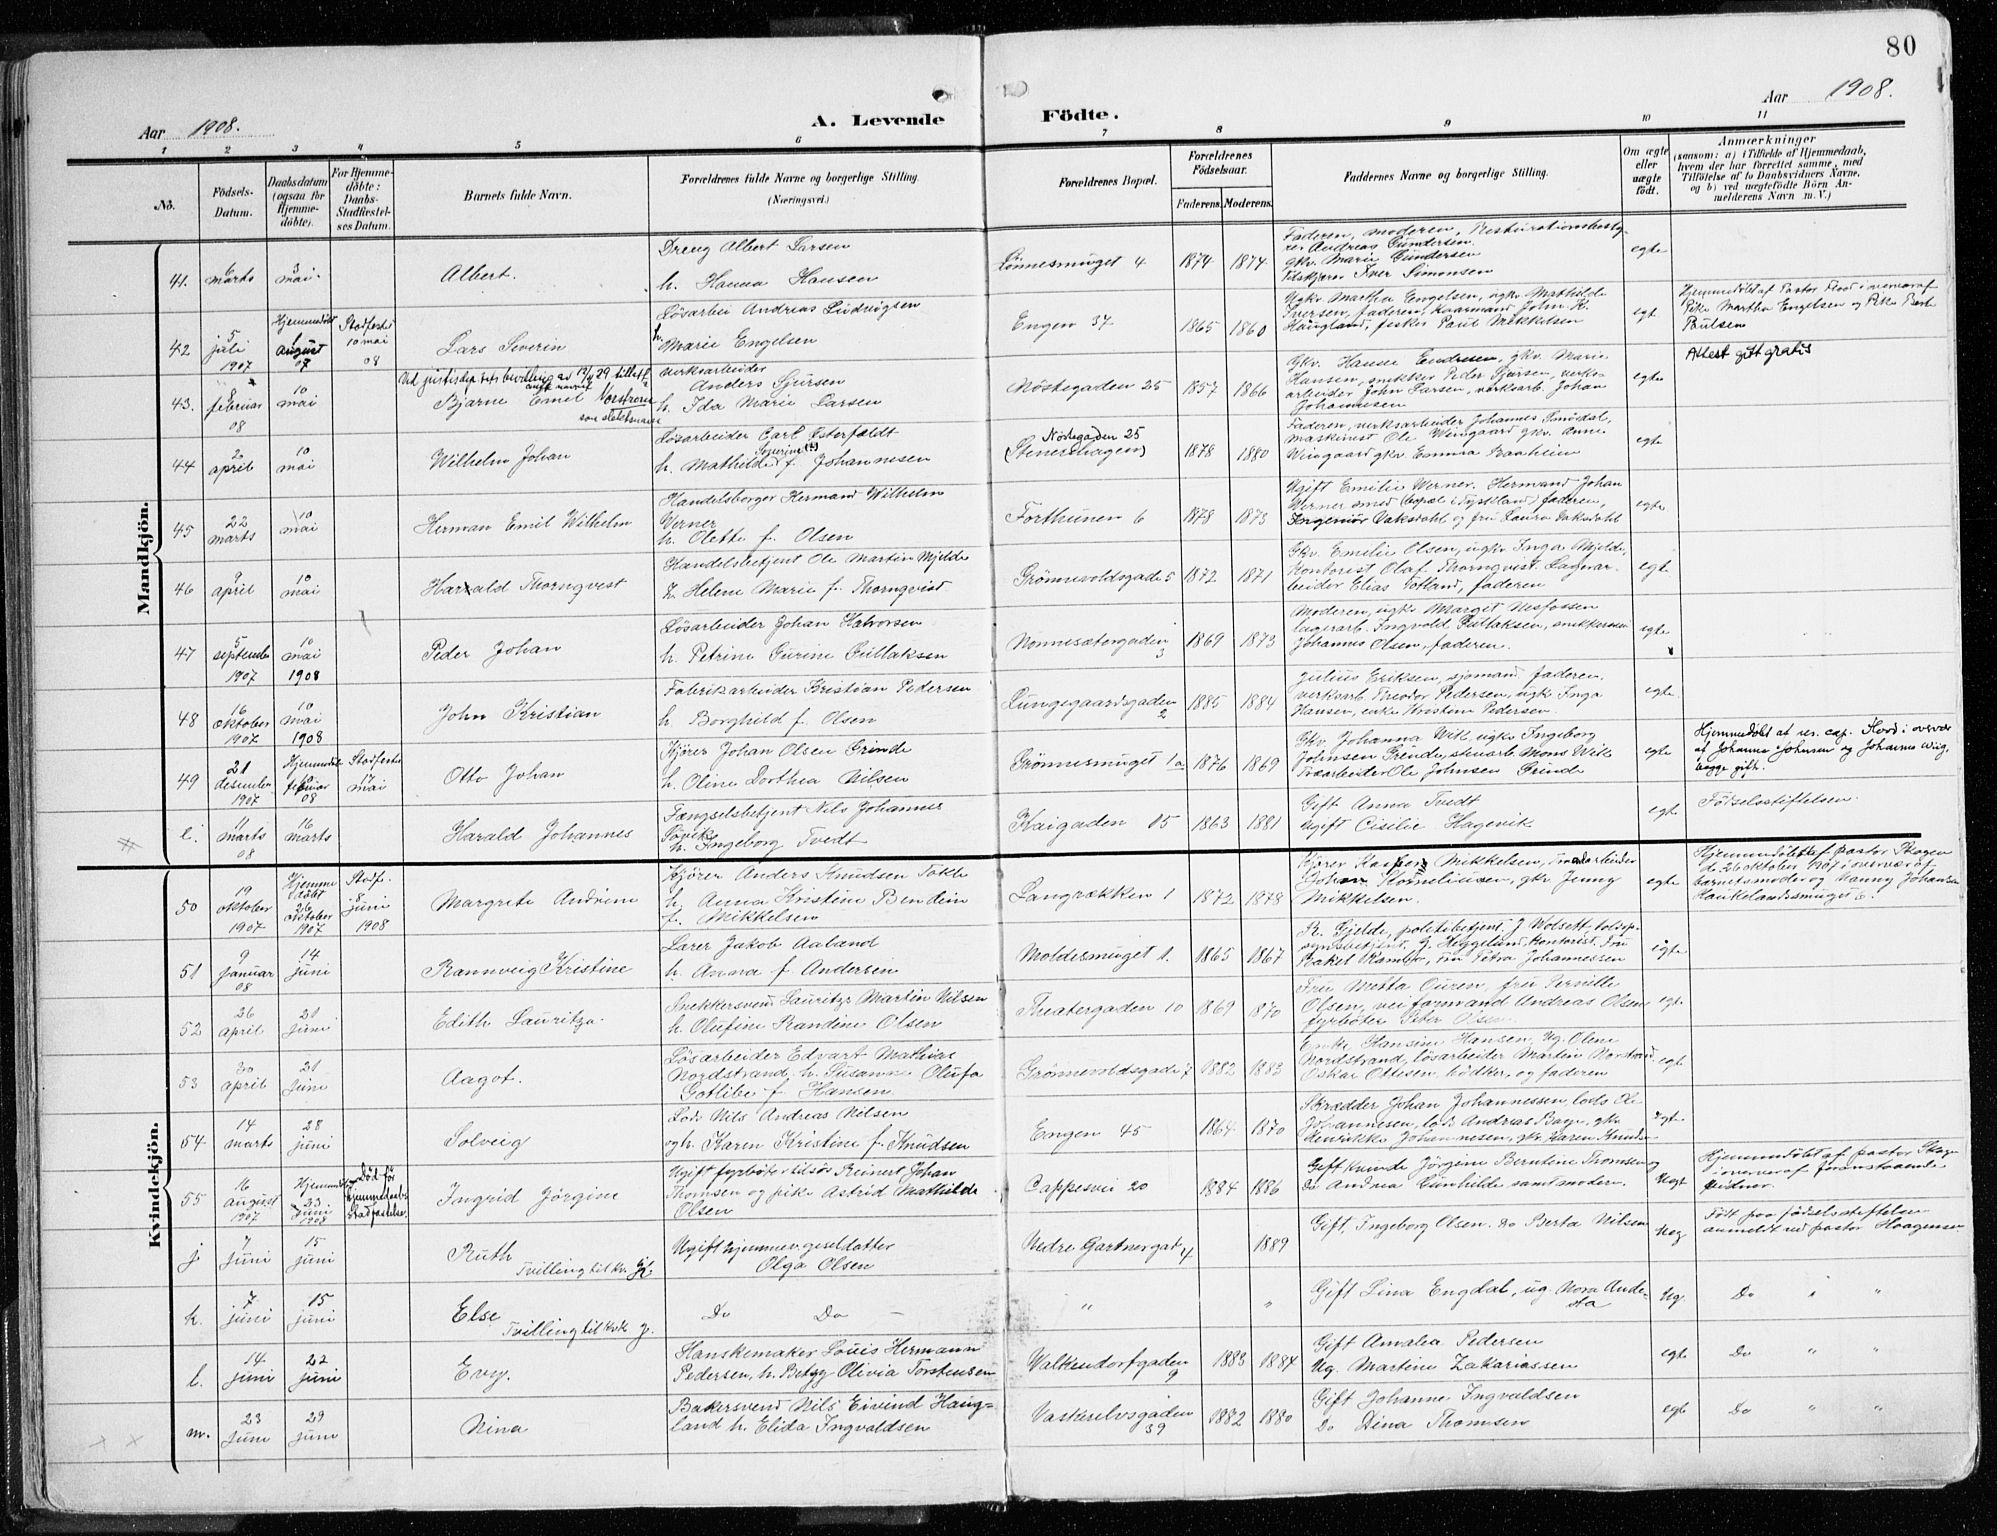 80
Aar 1908.
A. Levende Födte.
Aar 1908.
1 2 3 4 5 6 7 8 9 10 11
No.
Födsels-Datum.
Daabsdatum (ogsaa for Hjemme-döbte).
For Hjemme-döbte: Daabs-Stadfæstel-ses Datum.
Barnets fulde Navn.
Forældrenes fulde Navne og borgerlige Stilling. (Næringsvei.)
Forældrenes Bopæl.
Forældrenes Födselsaar.
Faderens. Moderens.
Faddernes Navne og borgerlige Stilling.
Om ægte eller uægte födt.
Anmærkninger (saasom: a) i Tilfælde af Hjemmedaab, hvem der har forrettet samme, med Tilföielse af to Daabsvidners Navne, og b) ved uægtefödte Börn An-melderens Navn m. V.)
Mandkjön.
41. 6 marts 3 mai. Albert. Dreng Albert Larsen h. Hanna Hansen Lönnesmuget 4 1874 1874 Faderen, moderen, Andreas Gundersen gkv. Marie Gundersen Iver Simonsen egte
42 5 juli 1907 Hjemmedöbt august 07 Stadfestet 10 mai 08 Lars Severin Lösarbei Andreas Ludvigsen h. Marie Engelsen Engen 37 1865 1860 Ugkv Martha Engelsen, ugkv Mathilde Iversen, faderen, kaarmand John K. Haugland, fisker Paul Mikkelsen egt Hjemmedöbt af Pastor Flod i nerværaf Pike Martha Engelsen og Pike Berte Paulsen
43. 8 februar 08 10 mai Bjarne Emil Norstrem som slektsnavn verksarbeider Anders Sjursen h. Ida Marie Larsen Nöstegaden 25 1857 1866 Gkv. Hanna Endresen, gkv Marie Hansen, snikker Peder Sjursen, verks-arbeider John Larsen, verksarb. Johan Johannesen egte Attest gitt gratis
44 2 april 10 mai Wilhelm Johan Lösarbeider Carl Österfaldt h. Mathilde f. Johannesen Nöstegaden 25 (Stenershagen) 1878 1880 Faderen, verksarbeider Johannes Smödal, maskinist Ole Wiingaard gkv. Anne Wiingaard gkv. Emma Baaheim egte
45 22 marts 10 mai Herman Emil Wilhelm Handelsborger Hermand Wilhelm Werner h. Olette f. Olsen Forthunen 6 1878 1873 Ugift Emilie Werner. Hermand Johan Werner smed (bopæl i Tyskland) faderen, Ingeniör Vaksdahl og fru Laura Vaksdahl egte
46 9 april 10 mai Harald Thornqvest Handelsbetjent Ole Martin Mjelde h. Helene Marie f. Thornqvist Grönnevoldsgade 5 1872 1871 Gkv. Emilie Olsen, ugkv Inga Mjelde, Kontorist Olaf Thornqvist. Lagerar-beider Elias Totland, faderen egte
47 5 september 1907 10 mai 1908 Peder Johan Lösarbeider Johan Halvorsen h. Petrine Gurine Gullaksen Nonnesætergaden 3 1869 1873 Moderen, ugkv Marget Nesfossen lagerarb. Ingvald Gullaksen, snikkersven Johannes Olsen, faderen. egte
48 16 oktober 1907 10 mai 1908 John Kristian Fabriksarbeider Kristian Pedersen h. Borghild f. Olsen Lungegaardsgaden 2 1885 1884 Julius Eriksen, sjömand faderen verksarb. Theodor Pedersen, ugkv Inga Hansen, enke Kristine Pedersen. egte
49 21 desember 1907 Hjemmedöbt 2 februar 08 Stadfestet 17 mai Otto Johan Kjörer Johan Olsen Grinde h. Oline Dorthea Nilsen Grönnesmuget 1a 1876 1869 Gkv Johanna Wik, ugkv Ingeborg Johnsen Grinde, stuarb. Mons Wik Ole Johnsen Grinde egte Hjemmedöbt af res. cap. Flod i overvær af Johanna Johnsen og Johannes Wiig, begge gift.
i. 11 marts 08 16 marts Harald Johannes Fængselsbetjent Nils Johannes h. Ingeborg Tvedt Kaigaden 15 1863 1881 Gift Anna Tvedt Ugift Cisilie Hagevik egte Födselsstiftelsen.
Kvindekjön.
50 19 oktober 1907 Hjemme döbt 26 oktober 1907 Stadf. 8 juni 1908 Margrete Andrine Kjörer Anders Knudsen Tokle h. Anna Kristine Bendein f. Mikkelsen Langrækken 1 1872 1878 Kjörer Kasper Mikkelsen, Johan Korneliusen, gkv Jenny Mikkelsen. egte Hjemmedöbt af pastor Skagen de 26 oktober 1907 i overvær af barnets moder og Nanny Johansen Haukelandsmuget 6.
51 9 januar 08 14 juni Rannveig Kristine Lærer Jakob Aaland h. Anna f. Andersen Moldesmuget 1. 1865 1867 R. Gjelde, politibetjent, J Wolsett, tolop-synsbetjent, J. Heggelund, kontorist, Fru Rakel Ramsö, Fru Petra Johannessen egte
52 26 april 21 juni Edith Lauritza. Snekkersvend Lauritz Martin Nilsen h. Olufine Randine Olsen Theatergaden 10 1869 1870 Fru Meta Ouren, fru Pernille Olsen, veiformand Andreas Olsen fyrböter Peter Olsen egt
53 30 april 21 juni Aagot. Lösarbeider Edvart Mathias Nordstrand. h. Susanne Olufa Gotlibe f Hansen Grönnevoldsgade 7 1882 1883 Enke Hansine Hansen, Ug. Oline Nordstrand, lösarbeider Martin Norstrand Oskar Ottesen, bödker, og faderen egt
54 14 marts 28 juni Solveig Lods Nils Andreas Nilsen og h. Karen Kristine f. Knudsen Engen 45 1864 1870 Skrædder Johan Johannessen, lods Ole Johannesen, lods Andreas Bage, gkv Henrikke Johannesen, gkv Karen Knudsen egt
55 16 august 1907 Hjemmedöbt 23 juni 1908 Död för hjemmedaabs stadfæstelse. Ingrid Jörgine Ugift fyrböter tilsös Reinert Johan Thomsen og pike Astrid Mathilde Olsen Cappesvei 20 1884 1886 Gift kvinde Jörgine Berntine Thomsen og Do Andrea Gunhilde samt moderen. Uegt Hjemmedöbt af pastor Skage i overvær af foranstaaende vidner.
j 7 juni 15 juni Ruth Tvilling til kv. k. Ugift hjemmev. geseldatter Olga Olsen Nedre Gartnergat 4 1889 Gift, Ingeborg Olsen. Do Berta Nilsen Ueg Födt paa födselsstiftelsen anmeldt ved pastor Haagensen.
k. 7 juni 15 juni Else Tvilling til kvk j. Do Do — " " Gift Lina Engdal, ug. Nora Ande-sta Ug. Do " "
l. 14 juni 22 juni Evy. Hanskemaker Louis Hermann Pedersen, h. Betzy Olivia Torstensen Valkendorfgaden 9 1883 1884 Gift Amalia Pedersen Ug. Martine Zakariassen egte Do " "
m. 23 juni 29 juni Nina Bakersvend Nils Eivind Haug=land h. Elida Ingvaldsen Vaskerelvsgaden 39 1882 1880 Gift Johanne Ingvaldsen Do Dina Thomsen egt Do " "